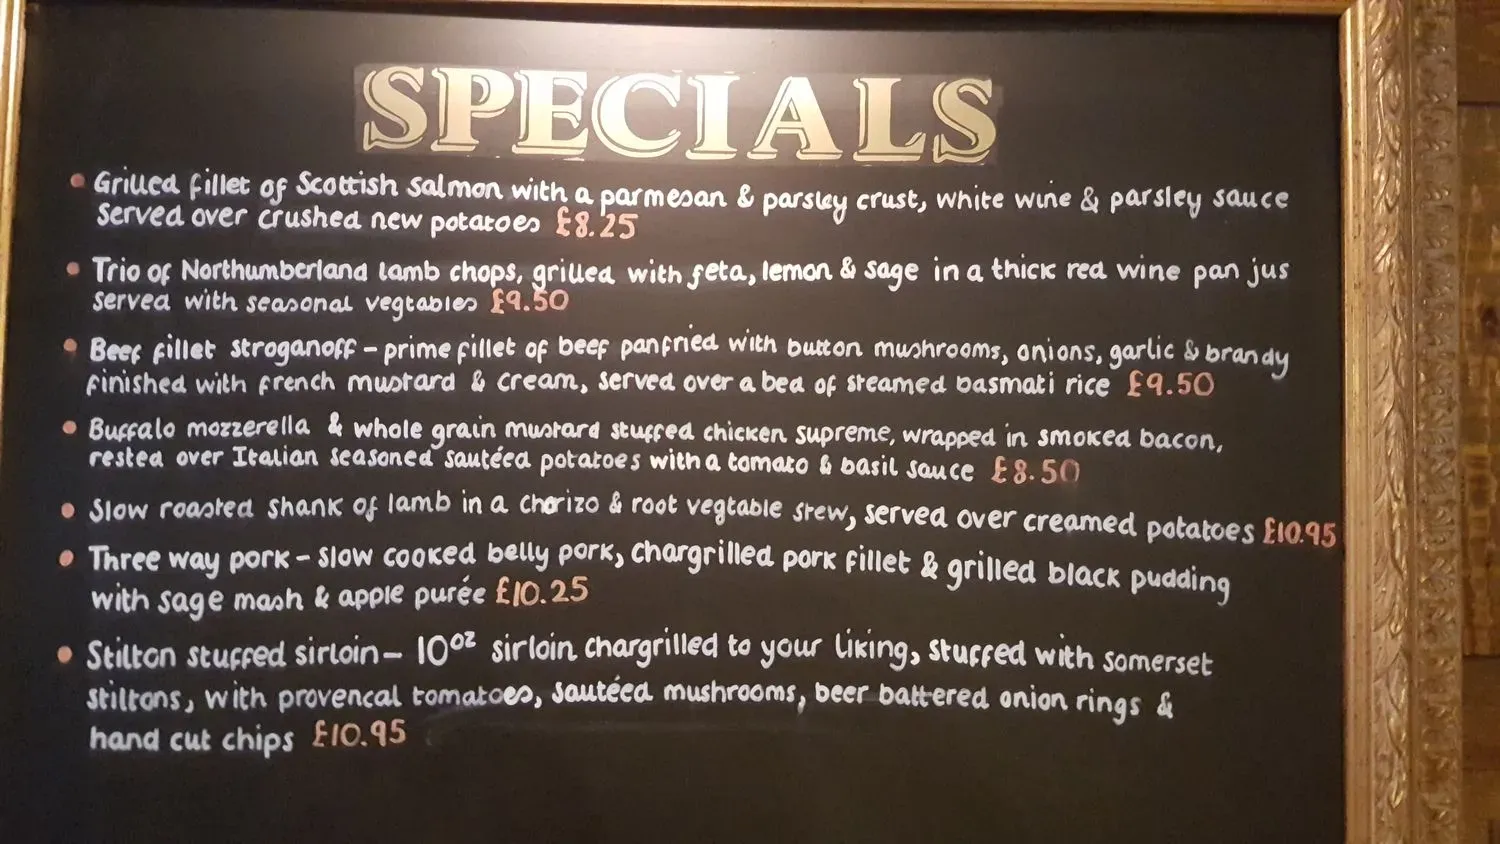 SPECIALS
• Grilled fillet of Scottish salmon with a parmesan & parsley crust, white wine & parsley sauce
served over crushed new potatoes £8.25
• Trio of Northumberland lamb chops, grilled with feta, lemon & sage in a thick red wine pan jus
served with seasonal vegtables £9.50
• Beef fillet stroganoff – prime fillet of beef panfried with button mushrooms, onions, garlic & brandy
finished with french mustard & cream, served over a bed of steamed basmati rice £9.50
• Buffalo mozzerella & whole grain mustard stuffed chicken supreme, wrapped in smoked bacon,
rested over Italian seasoned sautéed potatoes with a tomato & basil sauce £8.50
• Slow roasted shank of lamb in a chorizo & root vegtable stew, served over creamed potatoes £10.95
• Three way pork – slow cooked belly pork, chargrilled pork fillet & grilled black pudding
with sage mash & apple purée £10.25
• Stilton stuffed sirloin – 10oz sirloin chargrilled to your liking, stuffed with somerset
stiltons, with provencal tomatoes, sautéed mushrooms, beer battered onion rings &
hand cut chips £10.95